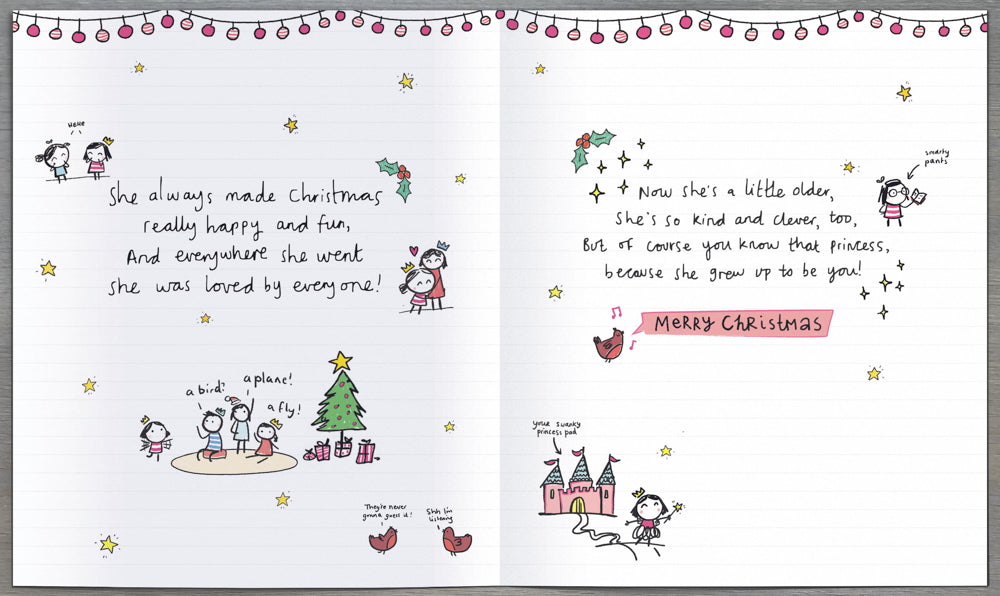 HeHe
She always made Christmas
really happy and fun,
And everywhere she went
she was loved by everyone!
a bird?
a plane!
a fly!
They're never
gonna guess it!
Shh I'm
listening
smarty
pants
Now she's a little older,
She's so kind and clever, too,
But of course you know that princess,
because she grew up to be you!
MERRY CHRISTMAS
your swanky
princess pad